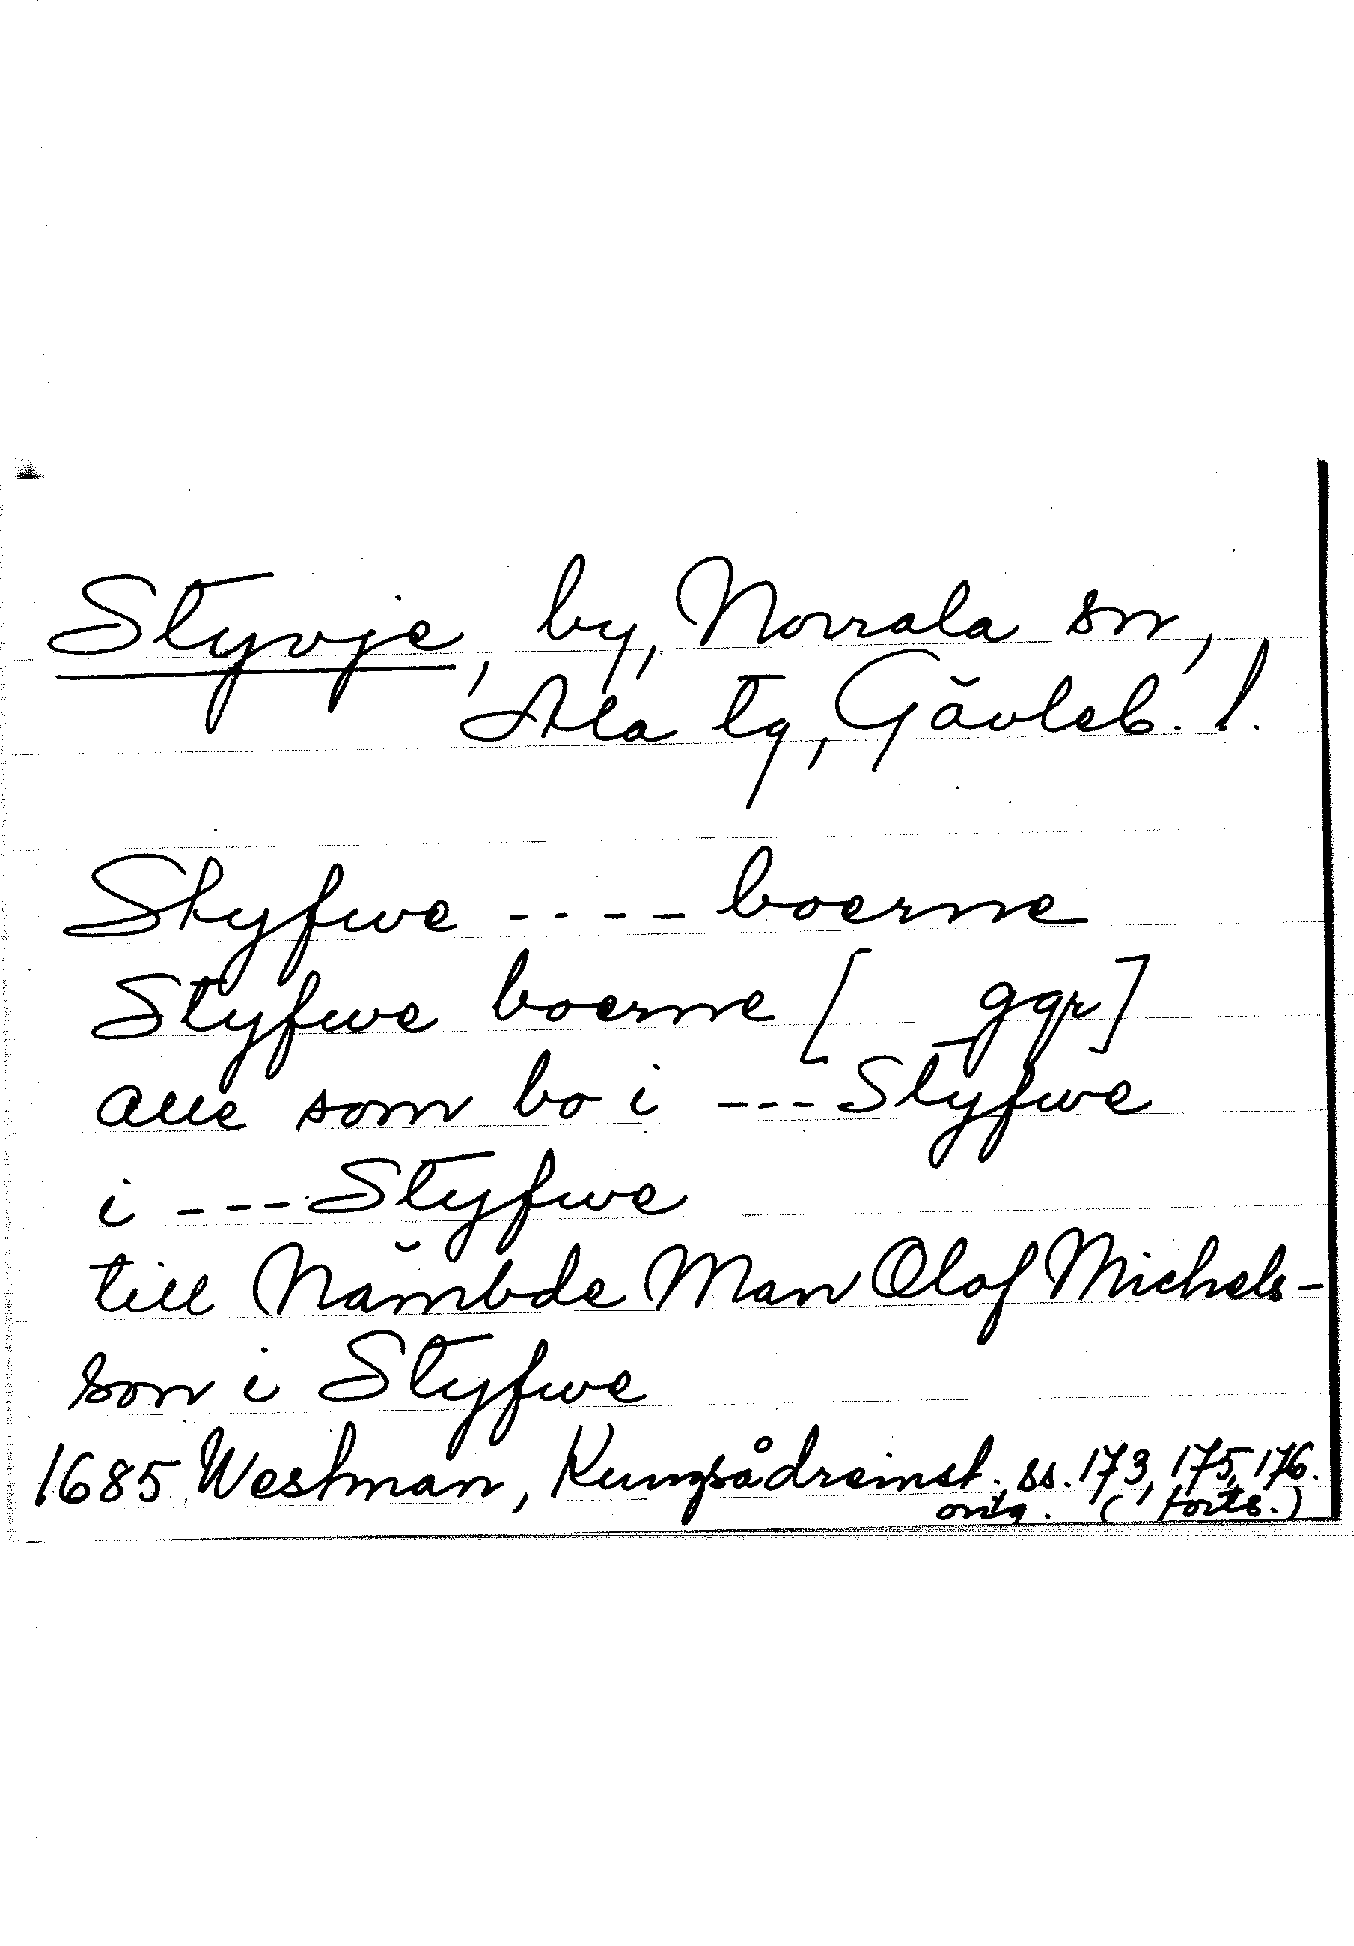 Styvje, by, Norrala sn,
Ala tg, Gävleb. l.
Styfwe ---- boerne
Styfwe boerne [ ggr]
alle som bo i --- Styfwe
i --- Styfwe
till Nämbde Man Olof Michels-
son i Styfwe
1685 Westman, Kungsådreinst. ss. 173, 175, 176.
orig. (forts.)